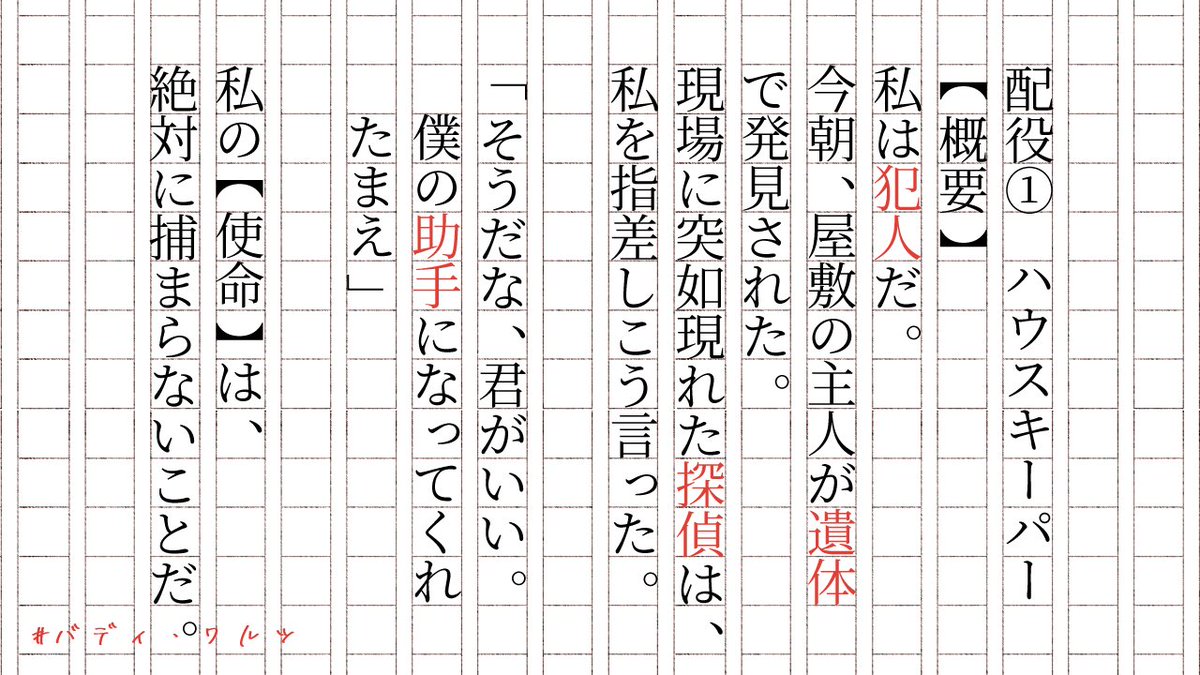 配役① ハウスキーパー
【概要】
私は犯人だ。
今朝、屋敷の主人が遺体
で発見された。
現場に突如現れた探偵は、
私を指差しこう言った。
「そうだな、君がいい。
僕の助手になってくれ
たまえ」
私の【使命】は、
絶対に捕まらないことだ。
#バディ・ワルツ